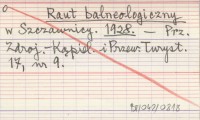 Raut balneologiczny
w Szczawnicy. 1928. — Prz.
Zdroj.-Kąpiel. i Przew. Turyst.
17, nr 9.